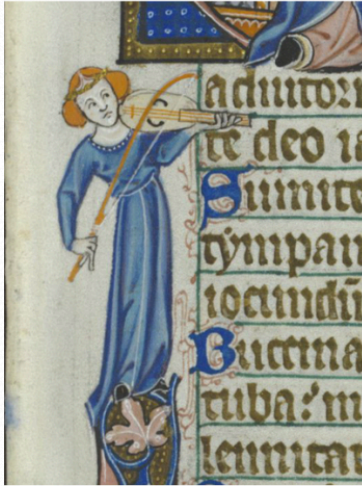 adiutori
te deo ia
Sumite
tympan
iocundu
Buccina
tuba: in
lennitat